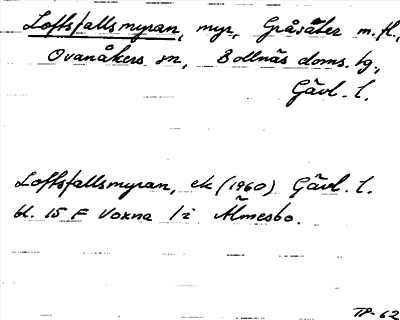 Loftsfallsmyran, myr, Gråsäter m.fl.,
Ovanåkers sn, Bollnäs doms. tg.,
Gävl. l.
Loftsfallsmyran, ek (1960) Gävl. l.
bl. 15 F Voxna 1 i Älmesbo.
TP-62